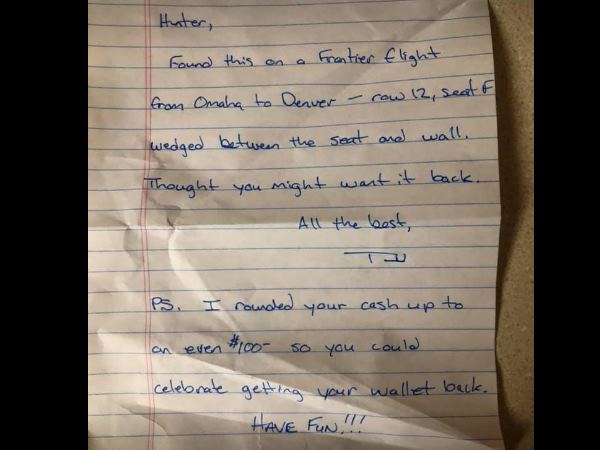 Hunter,
Found this on a Frontier flight
from Omaha to Denver – row 12, seat F
wedged between the seat and wall.
Thought you might want it back.
All the best,
TB
PS. I rounded your cash up to
an even $100- so you could
celebrate getting your wallet back.
HAVE FUN!!!